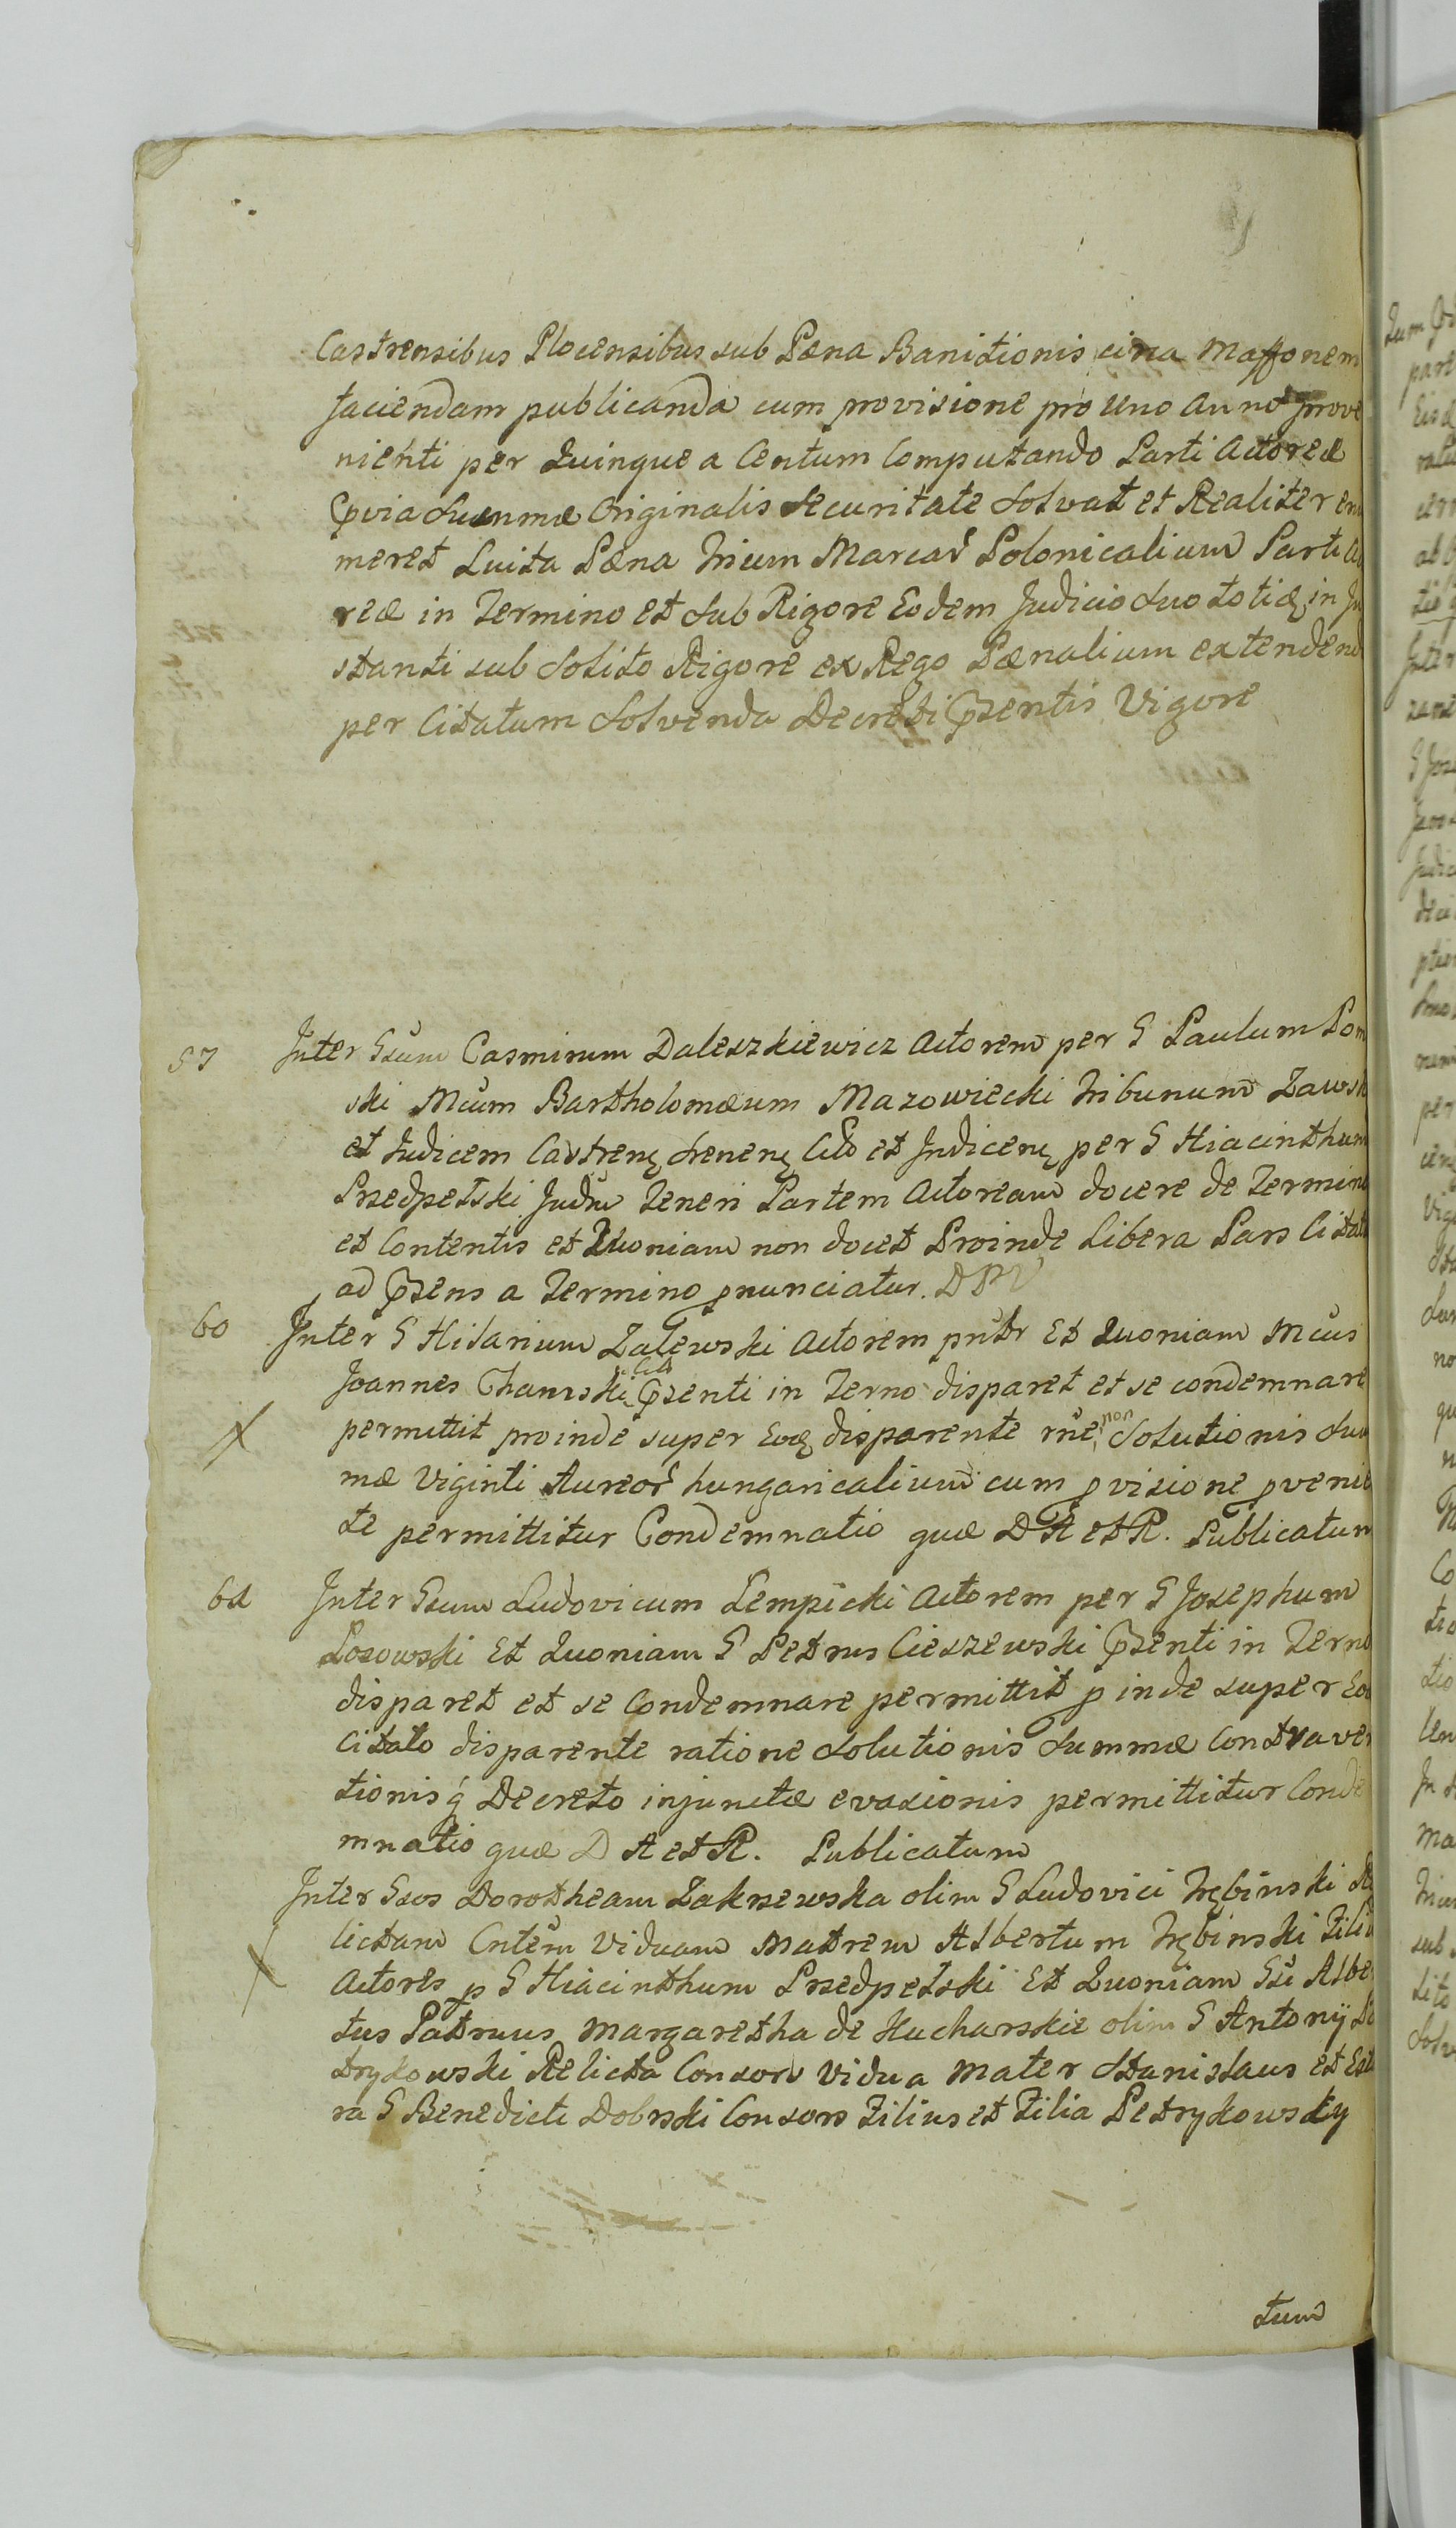 Castrensibus Plocensibus sub Pæna Banitionis circa Maffonem
faciendam publicanda cum provisione pro uno Anno prove
nienti per Quinque a Centum Computando Parti Actoreæ
Qvia Summæ Originalis Securitate Solvat et Realiter en
meret Luita Pæna trium Marcar Polonicalium Parti Ac
reæ in Termino et Sub Rigore Eodem Judicio Suo totiq in Ju
stanti sub Solito Rigore ex Rego Pænalium extendend
per Citatum Solvenda Decreti Pzentis Vigore
57 Inter Gsum Casmirum Daleszkiewicz Actorem per G Paulum Pom
ski Mcum Bartholomæum Mazowiecki Tribunum Zawsk
et Judicem Castren Srenen Citto et Judicem per G Hiacinthum
Przedpetski Judm Teneri Partem Actoream docere de Termino
et Contentis et Quoniam non docet Proinde Libera Pars Citata
ad Pzens a Termino pnunciatur. DPV
60 Inter G Hilarium Zalewski Actorem pntr Et Quoniam Mcus
Joannes Chamski Citts Pzenti in Terno disparet et se condemnare
permittit proinde super Eoq disparente rne non Solutionis Sum
mæ Viginti Aureor hungaricalium cum pvisione pvenie
te permittitur Condemnatio quæ D A et R. Publicatum
61 Inter Gsum Ludovicum Lempicki Actorem per G Josephum
Lozowski Et Quoniam G Petrus Cieszewski Pzenti in Terno
disparet et se Condemnare permittit pinde super Eo
Citato disparente ratione Solutionis Summæ Contraven
tionisq Decreto injunctæ evasionis permittitur Conde
mnatio quæ D A et R. Publicatum
Inter Gsos Dorotheam Zakrzewska olim G Ludovici Trębinski Re
lictam Cntem Viduam Matrem Albertum Trębinski Filiu
Actores p G Hiacinthum Przedpetski Et Quoniam Gsi Alber
tus Patruus Margaretha de Kucharskie olim G Antonij Pe
trykowski Relicta Consors Vidua Mater Stanislaus et
ra G Benedicti Dobrski Consors Filius et Filia Petrykowsky
tum